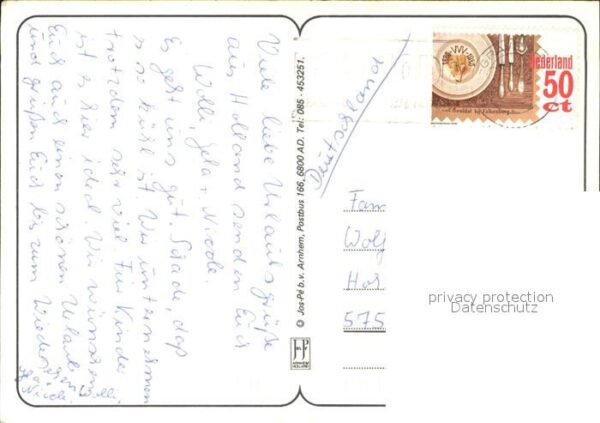 Viele liebe Urlaubsgrüße
aus Holland senden Euch
Willi, Jela + Nicole.
Es geht uns gut. Schade, daß
es so kühl ist. Wir unternehmen
trotzdem sehr viel. Für Kinder
ist es hier ideal. Wir wünschen
Euch auch einen schönen Urlaub
und grüßen Euch bis zum Wiedersehen
Willi,
Nicole
© Jos-Pé b.v. Arnhem, Postbus 166, 6800 AD. Tel: 085 - 453251.
JP
ARNHEM
HOLLAND
Deutschland
1885 VVV 1985
Nederland
50
ct
Fam
Wolf
Hor
575
privacy protection
Datenschutz